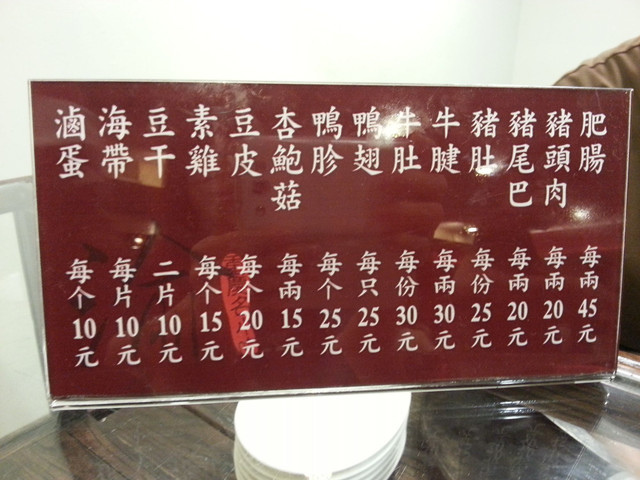 肥腸 每兩45元
豬頭肉 每兩20元
豬尾巴 每兩20元
豬肚 每份25元
牛腱 每兩30元
牛肚 每份30元
鴨翅 每只25元
鴨胗 每个25元
杏鮑菇 每兩15元
豆皮 每个20元
素雞 每个15元
豆干 二片10元
海帶 每片10元
滷蛋 每个10元